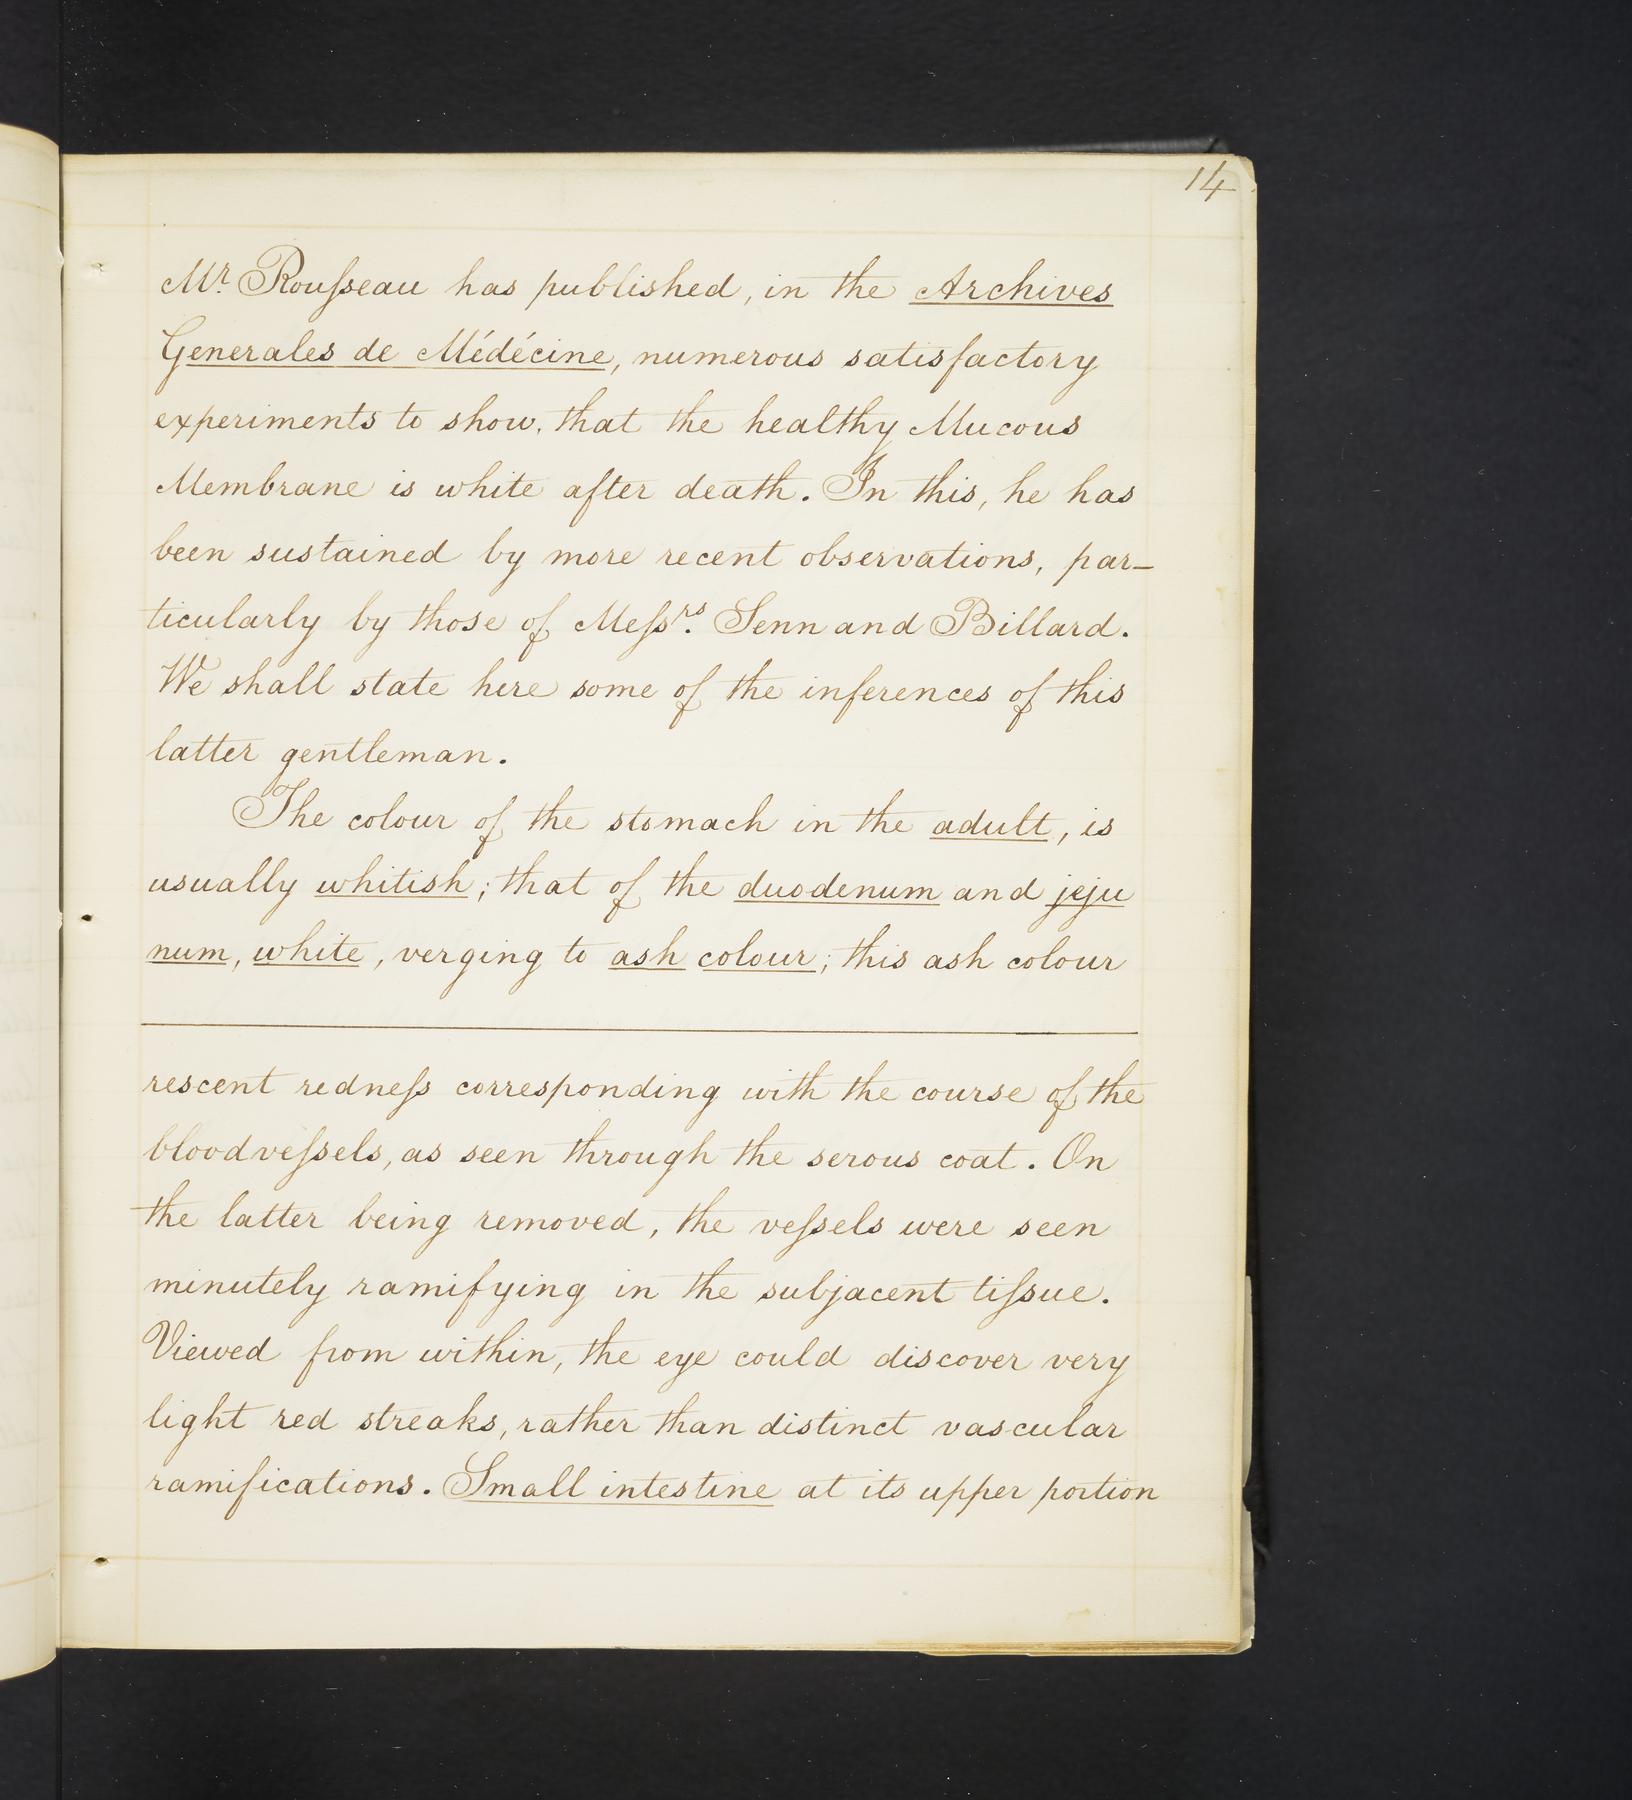 14
Mr. Rousseau has published, in the Archives
Generales de Médécine, numerous satisfactory
experiments to show, that the healthy Mucous
Membrane is white after death. In this, he has
been sustained by more recent observations, par-
ticularly by those of Messrs. Senn and Billard.
We shall state here some of the inferences of this
latter gentleman.
The colour of the stomach in the adult, is
usually whitish; that of the duodenum and jeju
num, white, verging to ash colour; this ash colour
rescent redness corresponding with the course of the
bloodvessels, as seen through the serous coat. On
the latter being removed, the vessels were seen
minutely ramifying in the subjacent tissue.
Viewed from within, the eye could discover very
light red streaks, rather than distinct vascular
ramifications. Small intestine at its upper portion